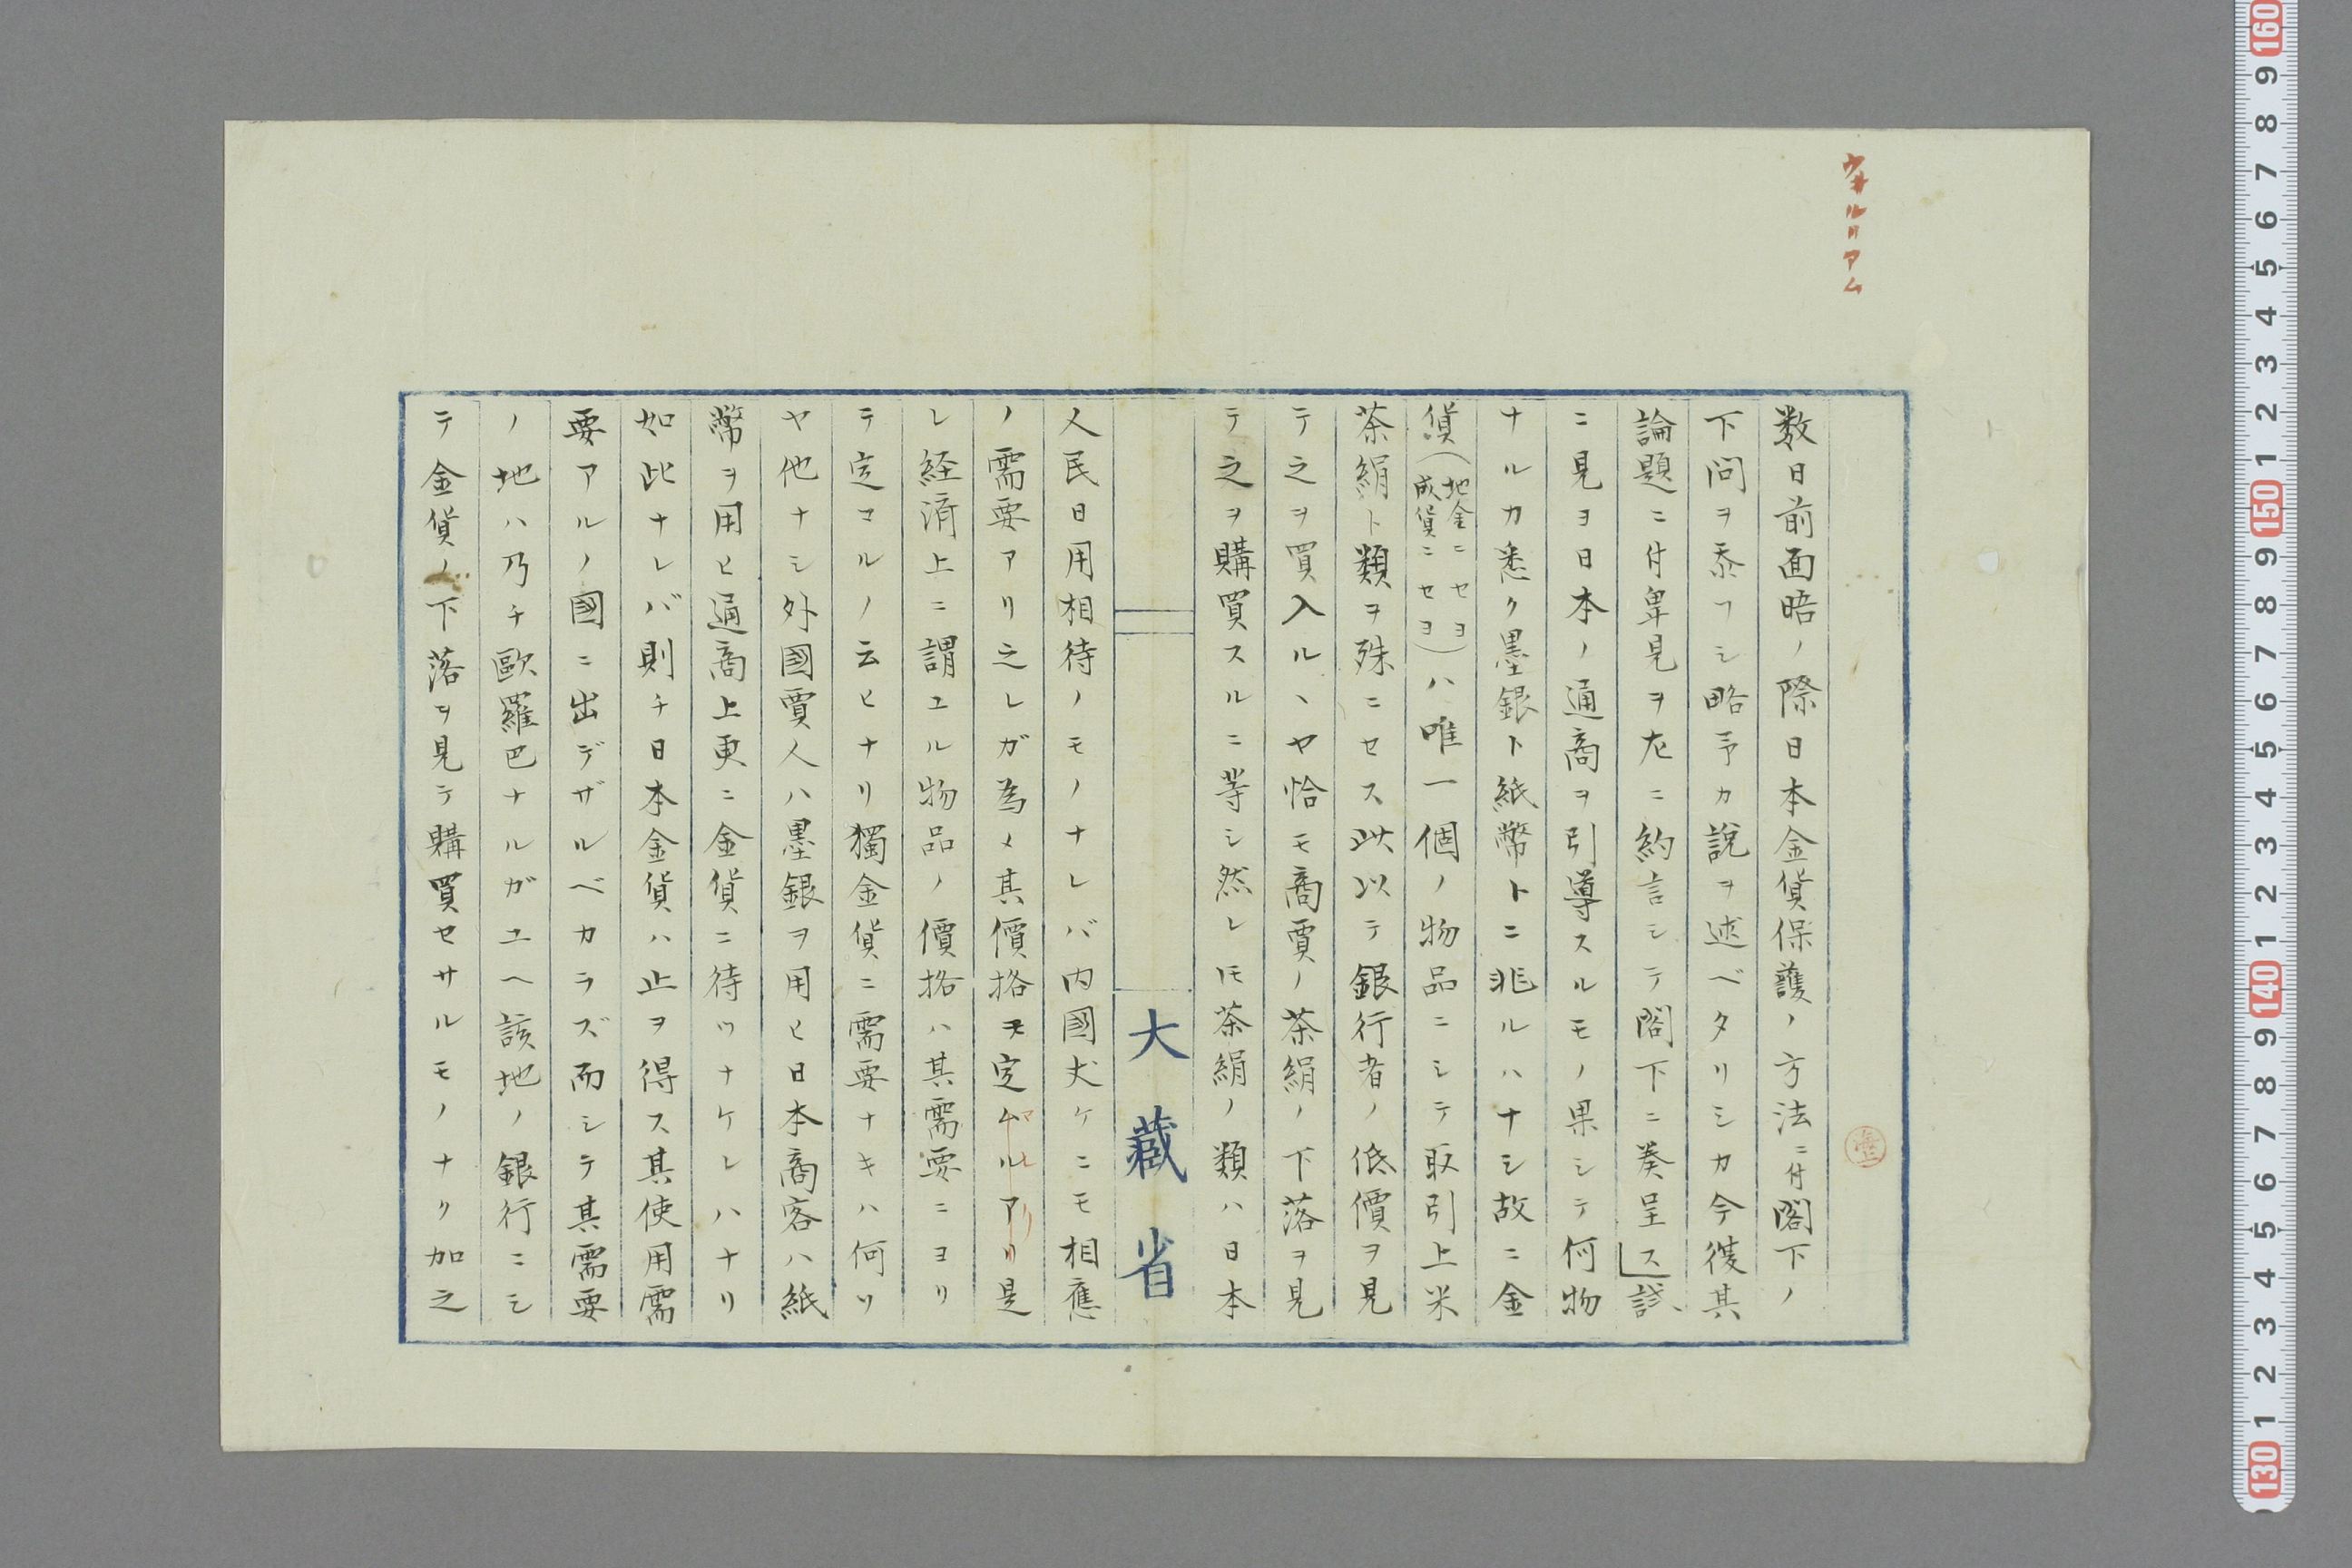 ウ井ルリアム
数日前面晤ノ際日本金貨保護ノ方法ニ付閣下ノ
下問ヲ忝フシ略予カ説ヲ述ベタリシカ今復其
論題ニ付卑見ヲ左ニ約言シテ閣下ニ奏呈ス試
ニ見ヨ日本ノ通商ヲ引導スルモノ果シテ何物
ナルカ悉ク墨銀ト紙幣トニ非ルハナシ故ニ金
貨(地金ニセヨ成貨ニセヨ)ハ唯一個ノ物品ニシテ取引上米
茶絹ト類ヲ殊ニセス此以テ銀行者ノ低價ヲ見
テ之ヲ買入ルヽヤ恰モ商賈ノ茶絹ノ下落ヲ見
テ之ヲ購買スルニ等シ然レ𪜈茶絹ノ類ハ日本
大藏省
人民日用相待ノモノナレバ内國丈ケニモ相應
ノ需要アリ之レガ為メ其價格モ定ムルアリ是
マレリ
レ経済上ニ謂ユル物品ノ價格ハ其需要ニヨリ
テ定マルノ云ヒナリ獨金貨ニ需要ナキハ何ソ
ヤ他ナシ外國賈人ハ墨銀ヲ用ヒ日本商客ハ紙
幣ヲ用ヒ通商上更ニ金貨ニ待ツナケレハナリ
如此ナレバ則チ日本金貨ハ止ヲ得ス其使用需
要アルノ國ニ出デザルベカラズ而シテ其需要
ノ地ハ乃チ歐羅巴ナルガユヘ該地ノ銀行ニシ
テ金貨ノ下落ヲ見テ購買セサルモノナク加之
160
9
8
7
6
5
4
3
2
1
150
9
8
7
6
5
4
3
2
1
140
9
8
7
6
5
4
3
2
1
130